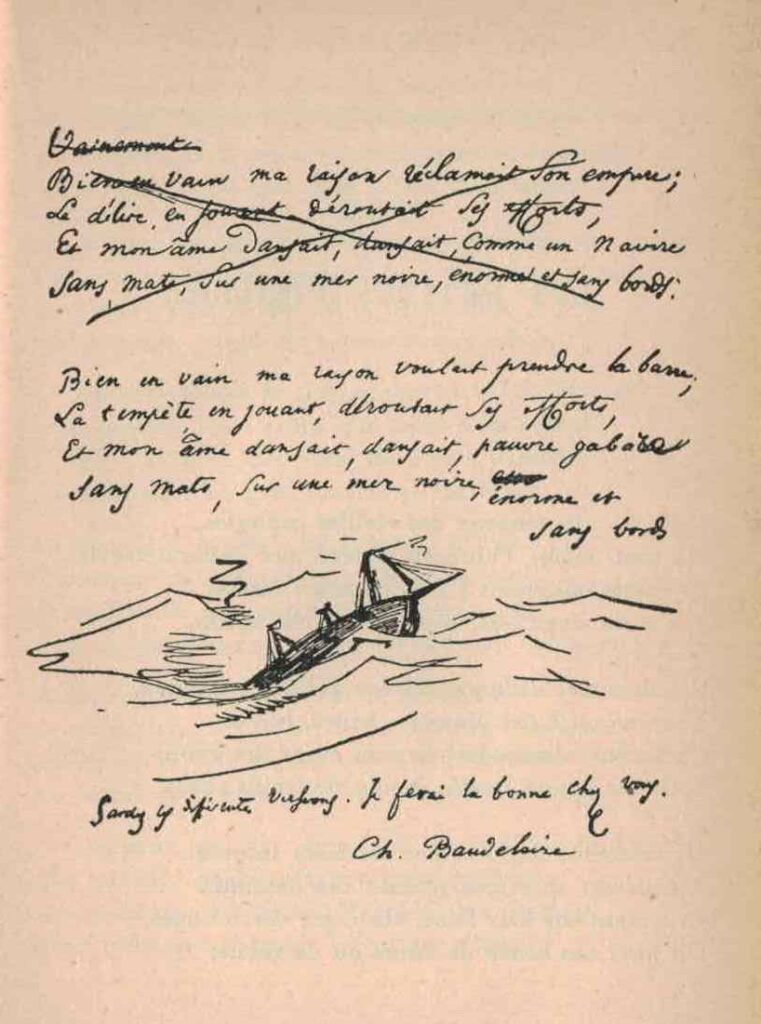 Vainement
Bien en vain ma raison réclamait son empire ;
Le délire, en jouant, déroutait ses efforts,
Et mon âme dansait, dansait, comme un navire
Sans mats, sur une mer noire, énorme et sans bords.
Bien en vain ma raison voulait prendre la barre,
La tempête en jouant, déroutait ses efforts,
Et mon âme dansait, dansait, pauvre gabare
Sans mats, sur une mer noire, énorme et
sans bords
Gardez ces différentes versions. Je ferai la bonne chez vous.
Ch. Baudelaire